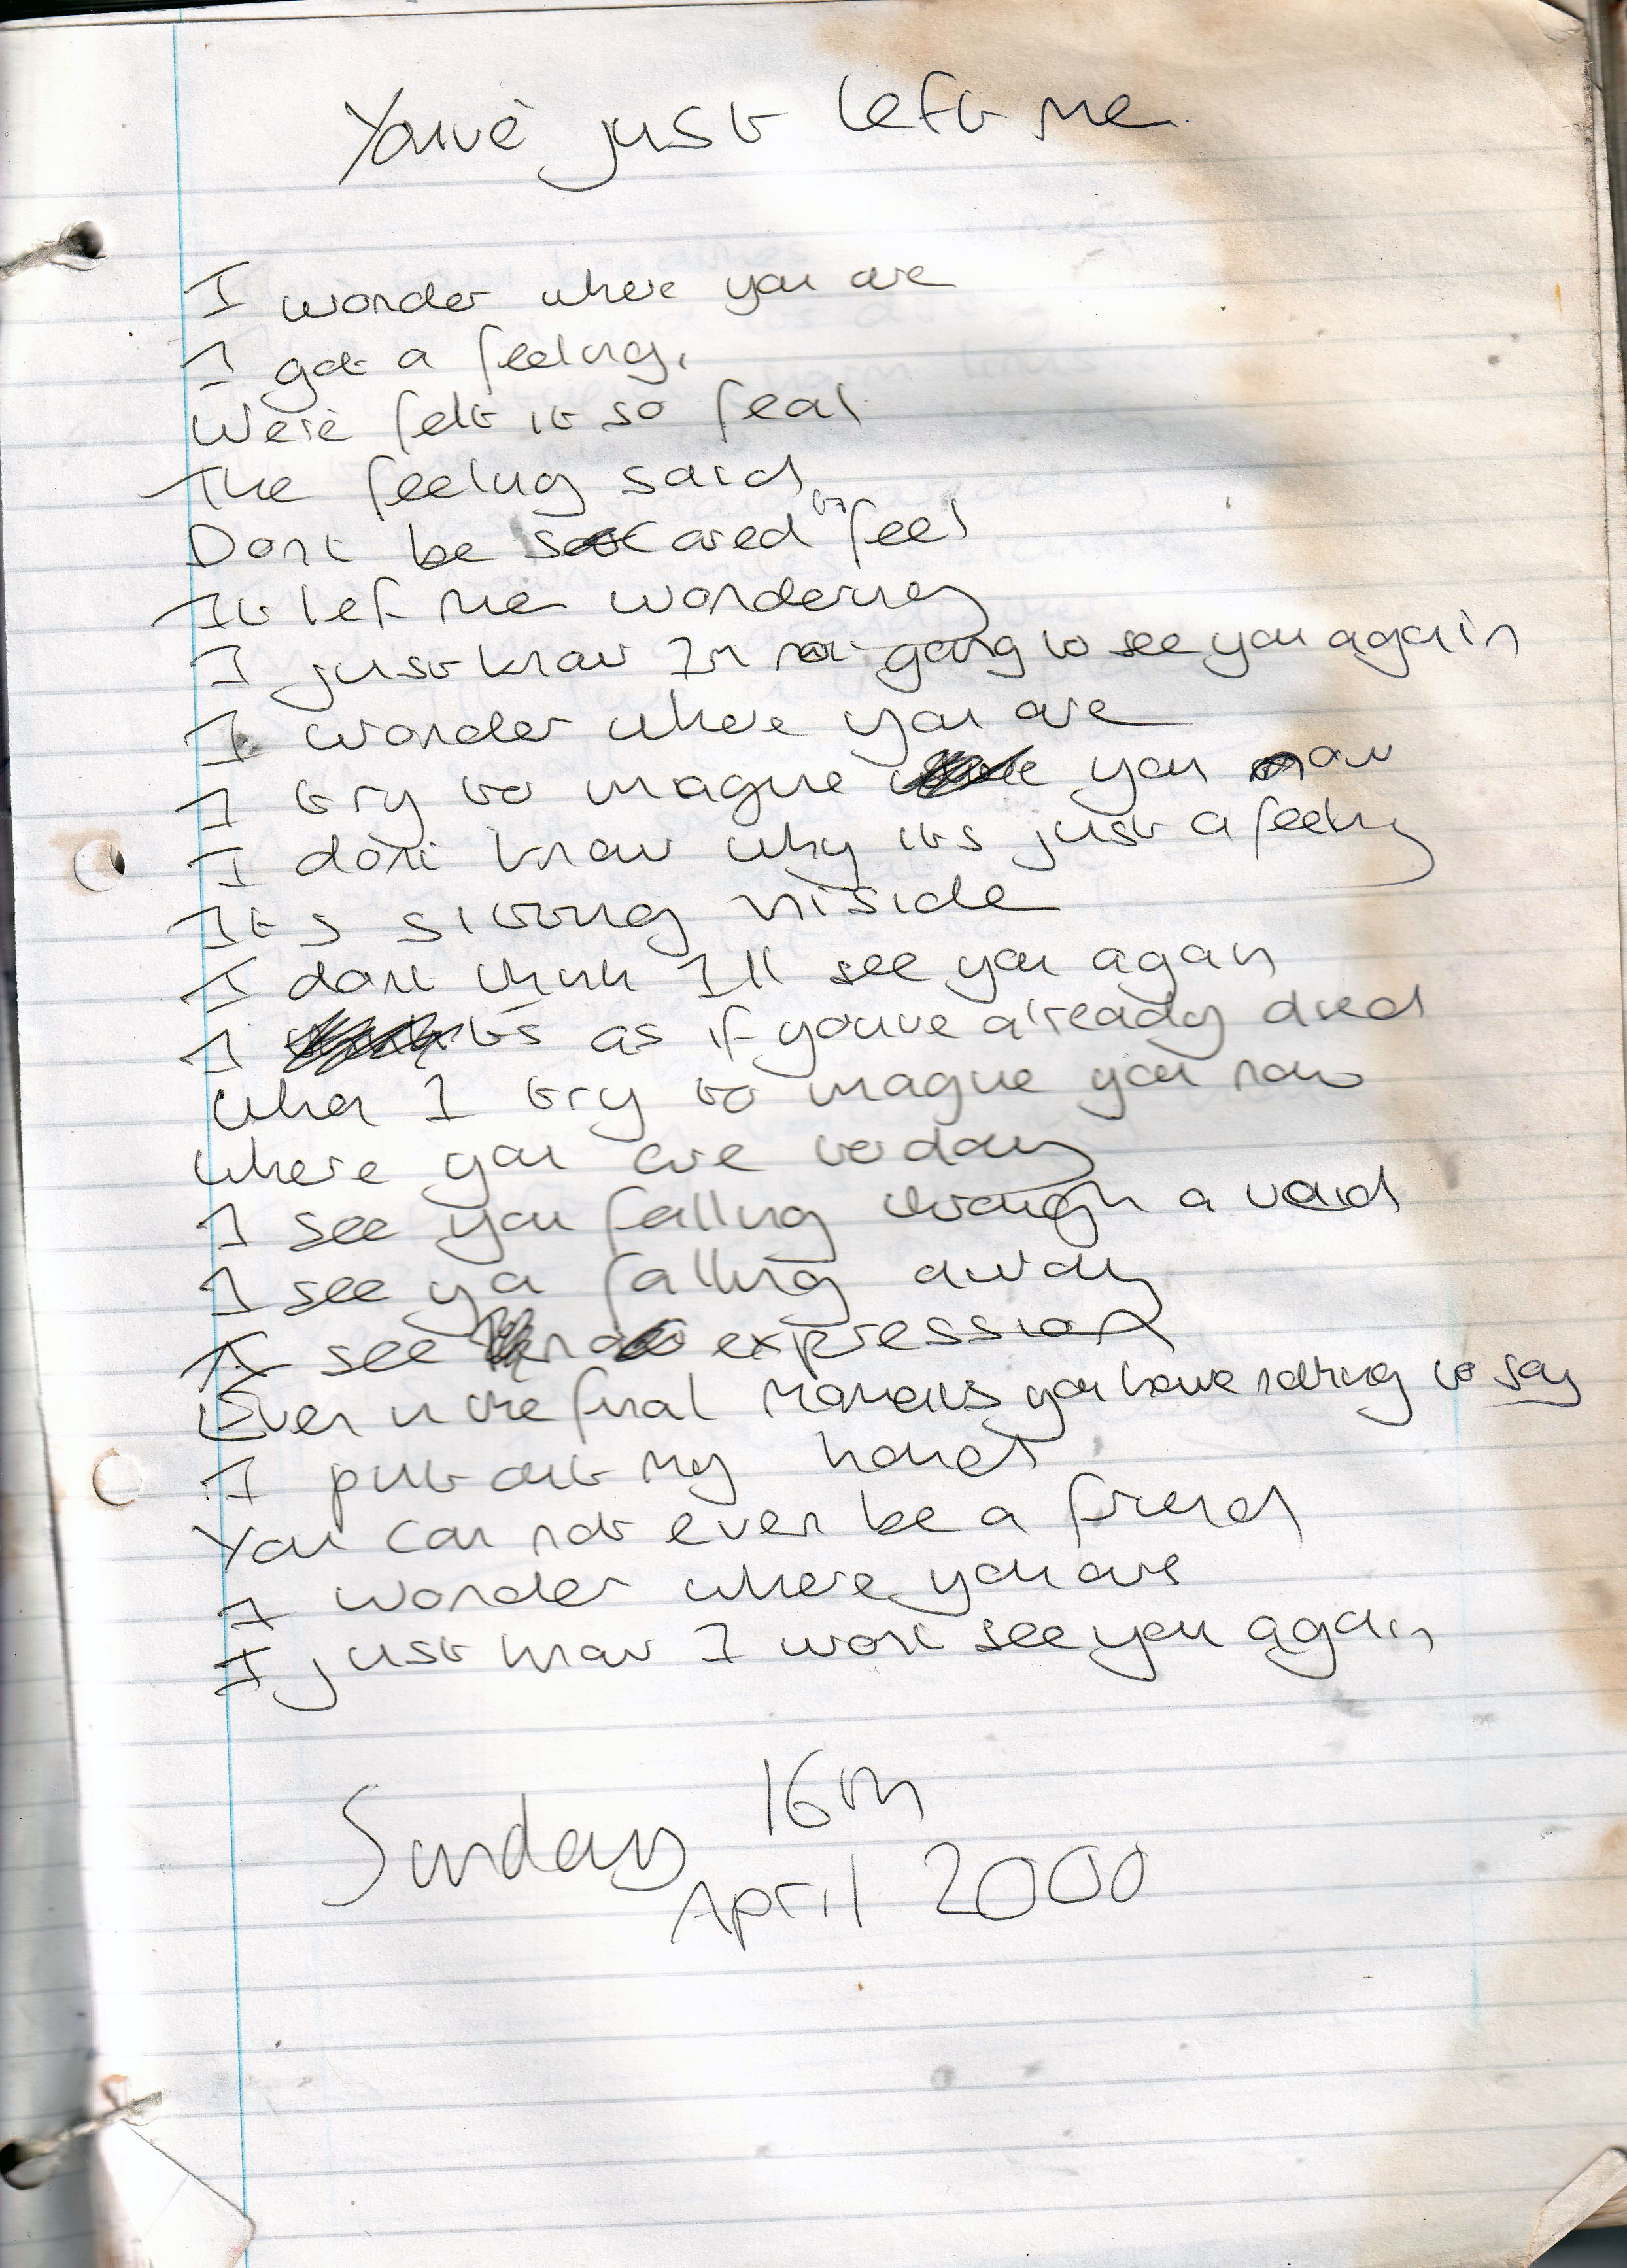 You've just left me
I wonder where you are
I got a feeling,
We're felt it so feal
The feeling said
Dont be scared to feel
It lef me wondering
I just know Im not going to see you again
I wonder where you are
I try to imagine you now
I don't know why its just a feeling
Its strong inside
I dont think I'll see you again
I its as if youve already died
When I try to imagine you now
Where you are today
I see you falling through a void
I see ya falling away
I see no expression
Even in the final moments you have nothing to say
I put out my hand
You can not even be a friend
I wonder where you are
I just know I wont see you again
Sunday 16th
April 2000